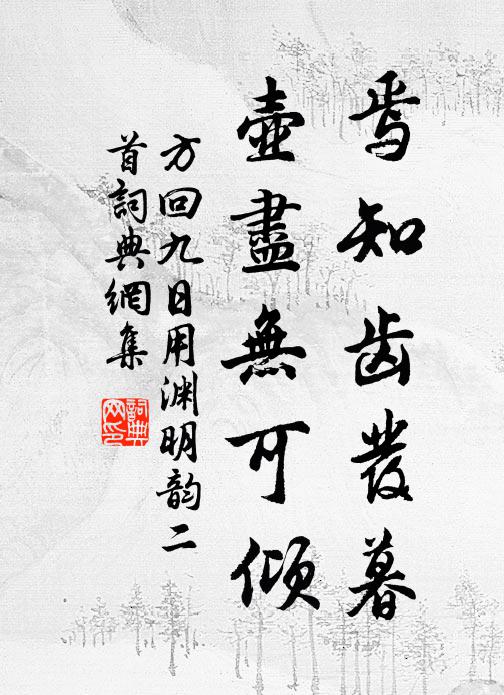 焉知齿发暮
壶盡無可傾
方回九日用渊明韵二
首詞典網集
詞典
网印